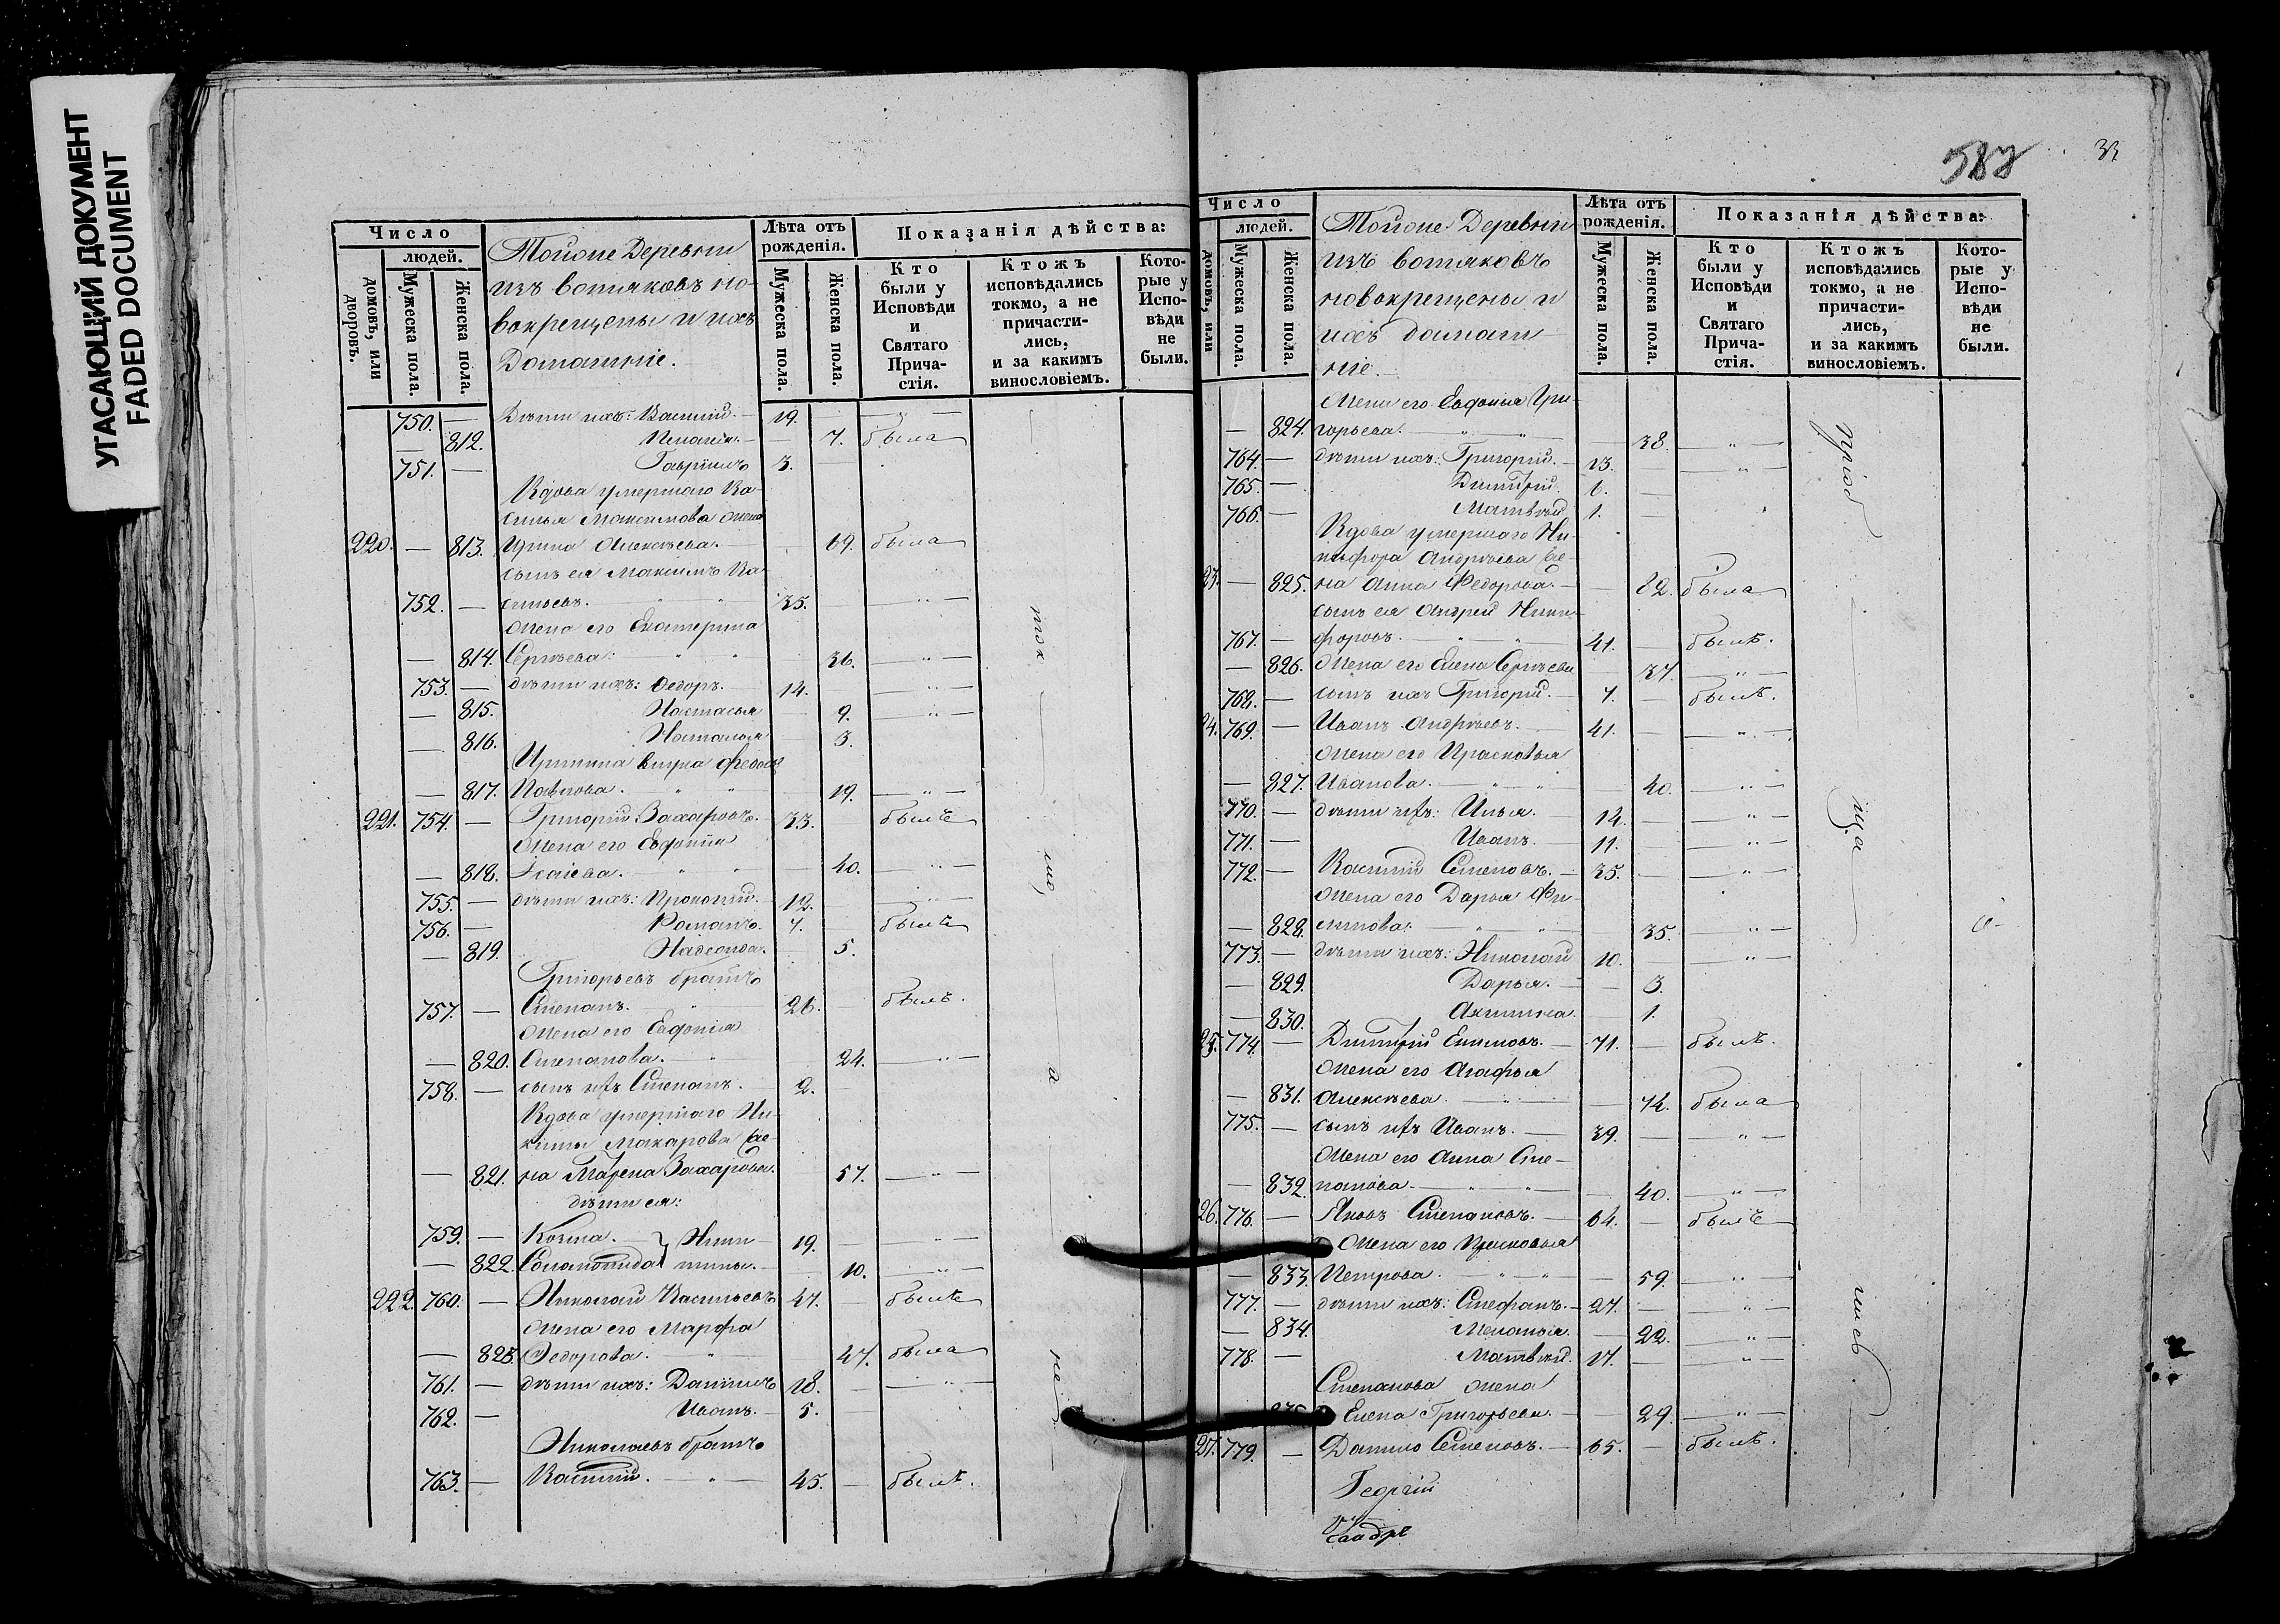 УГАСАЮЩИЙ ДОКУМЕНТ
FADED DOCUMENT
Число
людей.
домовъ, или дворовъ.
Мужеска пола.
Женска пола.
Тойоже Деревни
изъ вотяковъ но-
вокрещены и ихъ
Домашніе.
Лѣта отъ рожденія.
Мужеска пола.
Женска пола.
Показанія дѣйства:
Кто были у Исповѣди и Святаго Прича-стія.
Ктожъ исповѣдались токмо, а не причасти-лись, и за какимъ винословіемъ.
Кото-рые у Испо-вѣди не были.
750. — Дѣти ихъ: Василий. 19. — " —
— 812. Пелагія. — 7. была
751. — Гаврiилъ 3.
Вдова умершаго Ва-
силья Максимова жена
220. — 813. Ирина Алексѣева. 69. была
сынъ ея Максимъ Ва-
752. — сильевъ. 35. — " —
Жена его Екатерина
— 814. Сергѣева. 36. — " —
753. — дѣти ихъ: Федоръ. 14. — " —
— 815. Настасья 9. — " —
— 816. Наталья 3.
Иринина внука Федосья
— 817. Павлова. 19. — " —
221. 754. — Григорій Захаровъ. 33. былъ
Жена его Евдокія
— 818. Исаіева. 40. — " —
755. — дѣти ихъ: Прокопій. 12. — " —
756. — Романъ. 7. былъ
— 819. Надежда. 5.
Григорьевъ братъ
757. — Степанъ. 26. былъ.
Жена его Евдокія
— 820. Степанова. 24. — " —
758. — сынъ ихъ Степанъ. 2.
Вдова умершаго Ни-
киты Макарова же-
— 821. на Марѳа Захарова. 57. — " —
дѣти ея:
759. — Козма. } Ники- 19. — " —
— 822. Соломонида } тины. 10. — " —
222. 760. — Николай Васильевъ 47. былъ
Жена его Марфа
— 823. Федорова. 47. была
761. — дѣти ихъ: Даниилъ 18. — " —
762. — Иванъ. 5.
Николаевъ братъ
763. — Василій. — " — 45. — былъ.
ток
мо,
а
не
587
Число
людей.
домовъ, или
Мужеска пола.
Женска пола.
Тойоже Деревни
изъ вотяковъ
новокрещены и
ихъ домаш-
ніе.
Лѣта отъ рожденія.
Мужеска пола.
Женска пола.
Показанія дѣйства:
Кто были у Исповѣди и Святаго Прича-стія.
Ктожъ исповѣдались токмо, а не причасти-лись, и за какимъ винословіемъ.
Кото-рые у Испо-вѣди не были.
Жена его Евдокія Гри-
— 824. горьева. 38. — " —
764. — дѣти ихъ: Григорій. 13. — " —
765. — Димитрій. 6.
766. — Матвѣй 1.
Вдова умершаго Ни-
кифора Андрѣева же-
23. — 825. на Анна Федорова. — 82. была
сынъ ея Андрей Ники-
767. — форовъ. 41. — былъ.
— 826. Жена его Елена Сергѣева 37. — " —
768. — сынъ ихъ Григорій. 7. — былъ.
24. 769. — Иванъ Андрѣевъ. 41. — " —
Жена его Прасковья
— 827. Иванова. 40. — " —
770. — дѣти ихъ: Илья. 14. — " —
771. — Иванъ. 11. — " —
772. — Василій Семеновъ. 35. — " —
Жена его Дарья Фи-
— 828. липова. 35. — " —
773. — дѣти ихъ: Николай 10. — " —
— 829. Дарья. 3.
— 830. Акилина. 1.
25. 774. — Димитрій Екимовъ. 71. — былъ.
Жена его Агафья
— 831. Алексѣева. — 74. была
775. — сынъ ихъ Иванъ. 39. — " —
Жена его Анна Сте-
— 832. панова. 40. — " —
26. 776. — Яковъ Степановъ. 64. — былъ
Жена его Прасковья
— 833. Петрова. 59. — " —
777. — дѣти ихъ: Стефанъ. 27. — " —
— 834. Меланья. 22. — " —
778. — Матвѣй. 17. — " —
Степанова жена
835. Елена Григорьева. 29. — " —
27. 779. — Данило Семеновъ. 65. — былъ.
Георгій